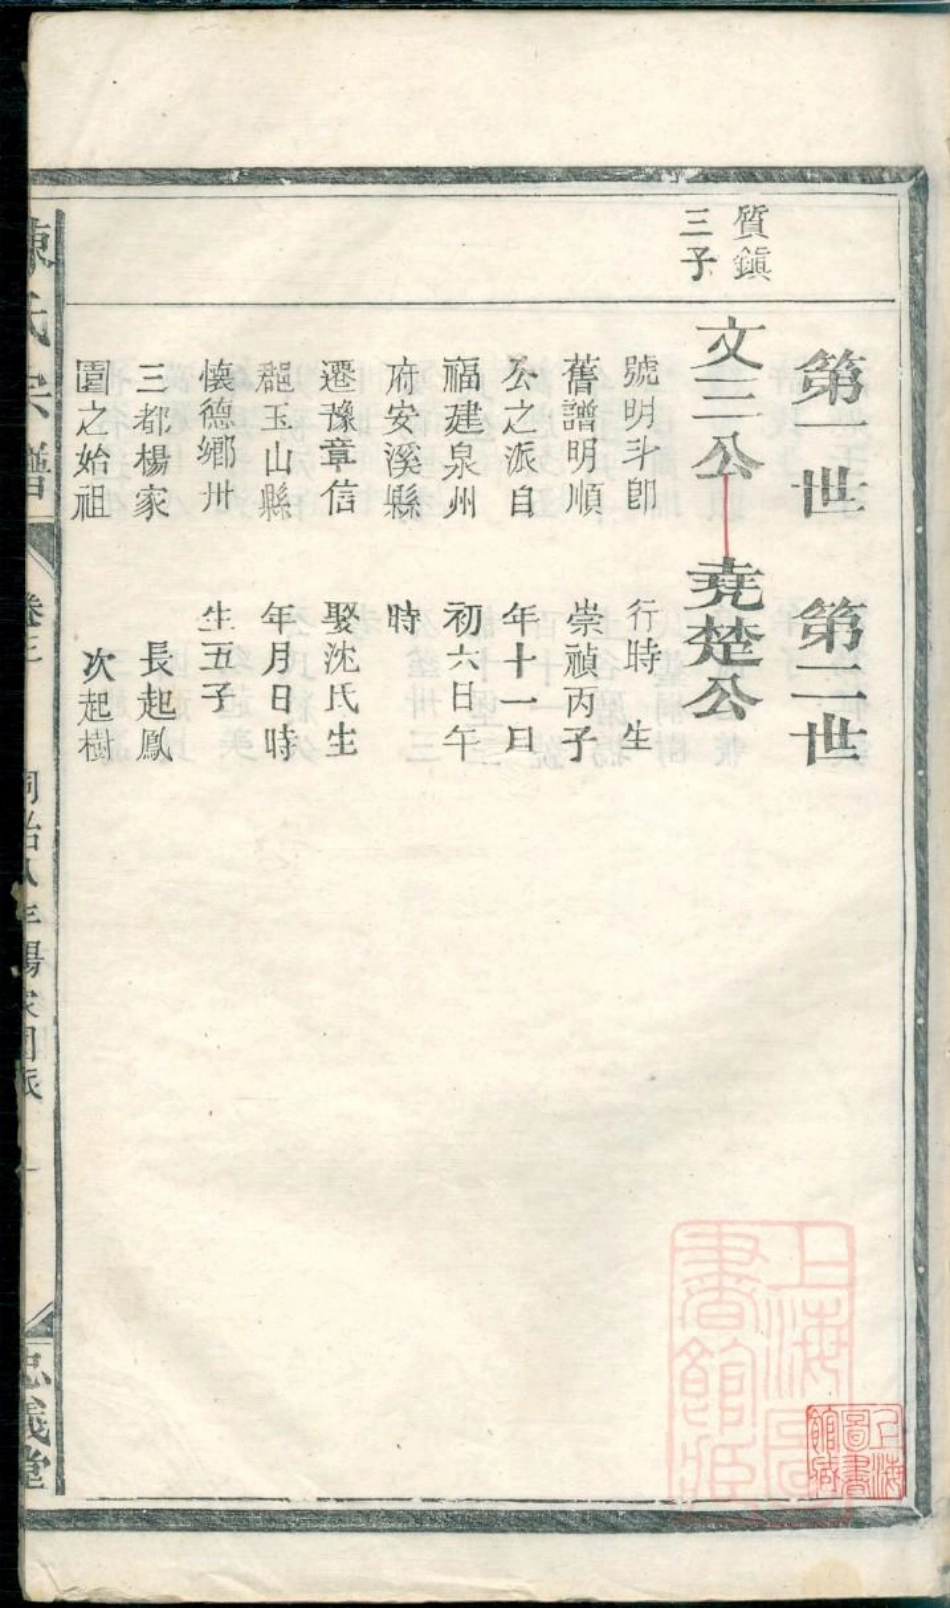 質鎮
三子
第一世
第二世
文三公
號明斗卽
舊譜明順
公之派自
福建泉州
府安溪縣
遷豫章信
郡玉山縣
懷德鄉卅
三都楊家
園之始祖
堯楚公
行時 生
崇禎丙子
年十一日
初六日午
時
娶沈氏生
年月日時
生五子
長起鳳
次起樹
陳氏宗譜
卷三
同治八年楊家園派
一
忠義堂
上海圖書館藏
上海圖書館藏